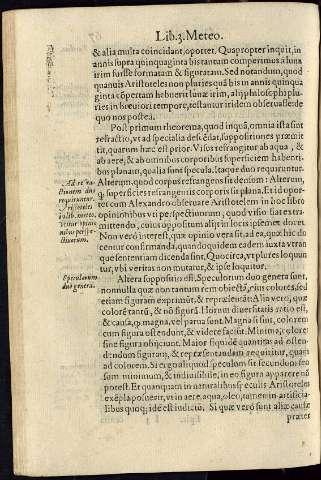 Lib. 3. Meteo.
& alia multa coincidant, oportet. Quapropter inquit, in
annis supra quinquaginta bis tantum comperimus à luna
irim fuisse formatam & figuratam. Sed notandum, quod
quanuis Aristoteles non plures quã bis in annis quinqua
ginta cõpertam habuerit lunæ irim, alij philosophi plu-
ries in breuiori tempore, testantur iridem obseruasse: de
quo nos postea.
Post primum theorema, quod inquã, omnia ista sunt
refractio, vt ad specialia descẽdat, suppositiones præmit
tit, quarum hæc est prior. Visus refrangitur ab aqua, &
ab aere, & ab omnibus corporibus superficiem habenti-
bus planam, qualia sunt specula, itaque duo requirũtur.
Alterum, quod corpus refrangens sit densum: Alterum,
q̃ superficies refrangentis corporis sit plana. Et id opor-
tet cum Alexandro obseruare Aristotelem in hoc libro
opinionibus vti perspectiuorum, quod visio fiat extra
mittendo, cuius oppositum alijs in locis ipsemet docet.
Non verò interest, quæ opinio vera sit, ad ea, quæ hic do
centur confirmanda, quandoquidem eadem iuxta vtran
que sententiam dicenda sint. Quo circa, vt plures loquun
tur, vbi veritas non mutatur, & ipse loquitur.
Altera suppositio est. Speculorum duo genera sunt,
nonnulla quæ non tantum rem obiectã, eius colores, sed
etiam figuram exprimũt, & repræsentãt. Alia verò, quæ
colorẽ tantũ, & nõ figurã. Horum diuersitatis ratio est,
& causa, q̃ magna, vel parua sunt. Magna si sint, colorem
cum figura ostendunt, & videre faciũt. Minima, colorem
sine figura obijciunt. Maior siquidẽ quantitas ad osten-
dendum figuram, & repræsentandam requiritur, quam
ad colorem. Si ergo aliquod speculum sit secundum sen-
sum minimum, & indiuisibile, in eo figura apparere nõ
potest. Et quanquam in naturalibus speculis Aristoteles
exẽpla posuerit, vt in aere, aqua, oleo, tamen in artificia-
libus quoq; idẽ est iudiciũ. Si quæ verò sunt aliæ causæ
præter
quiruntur.
Aristoteles
Speculorum
duo genera.